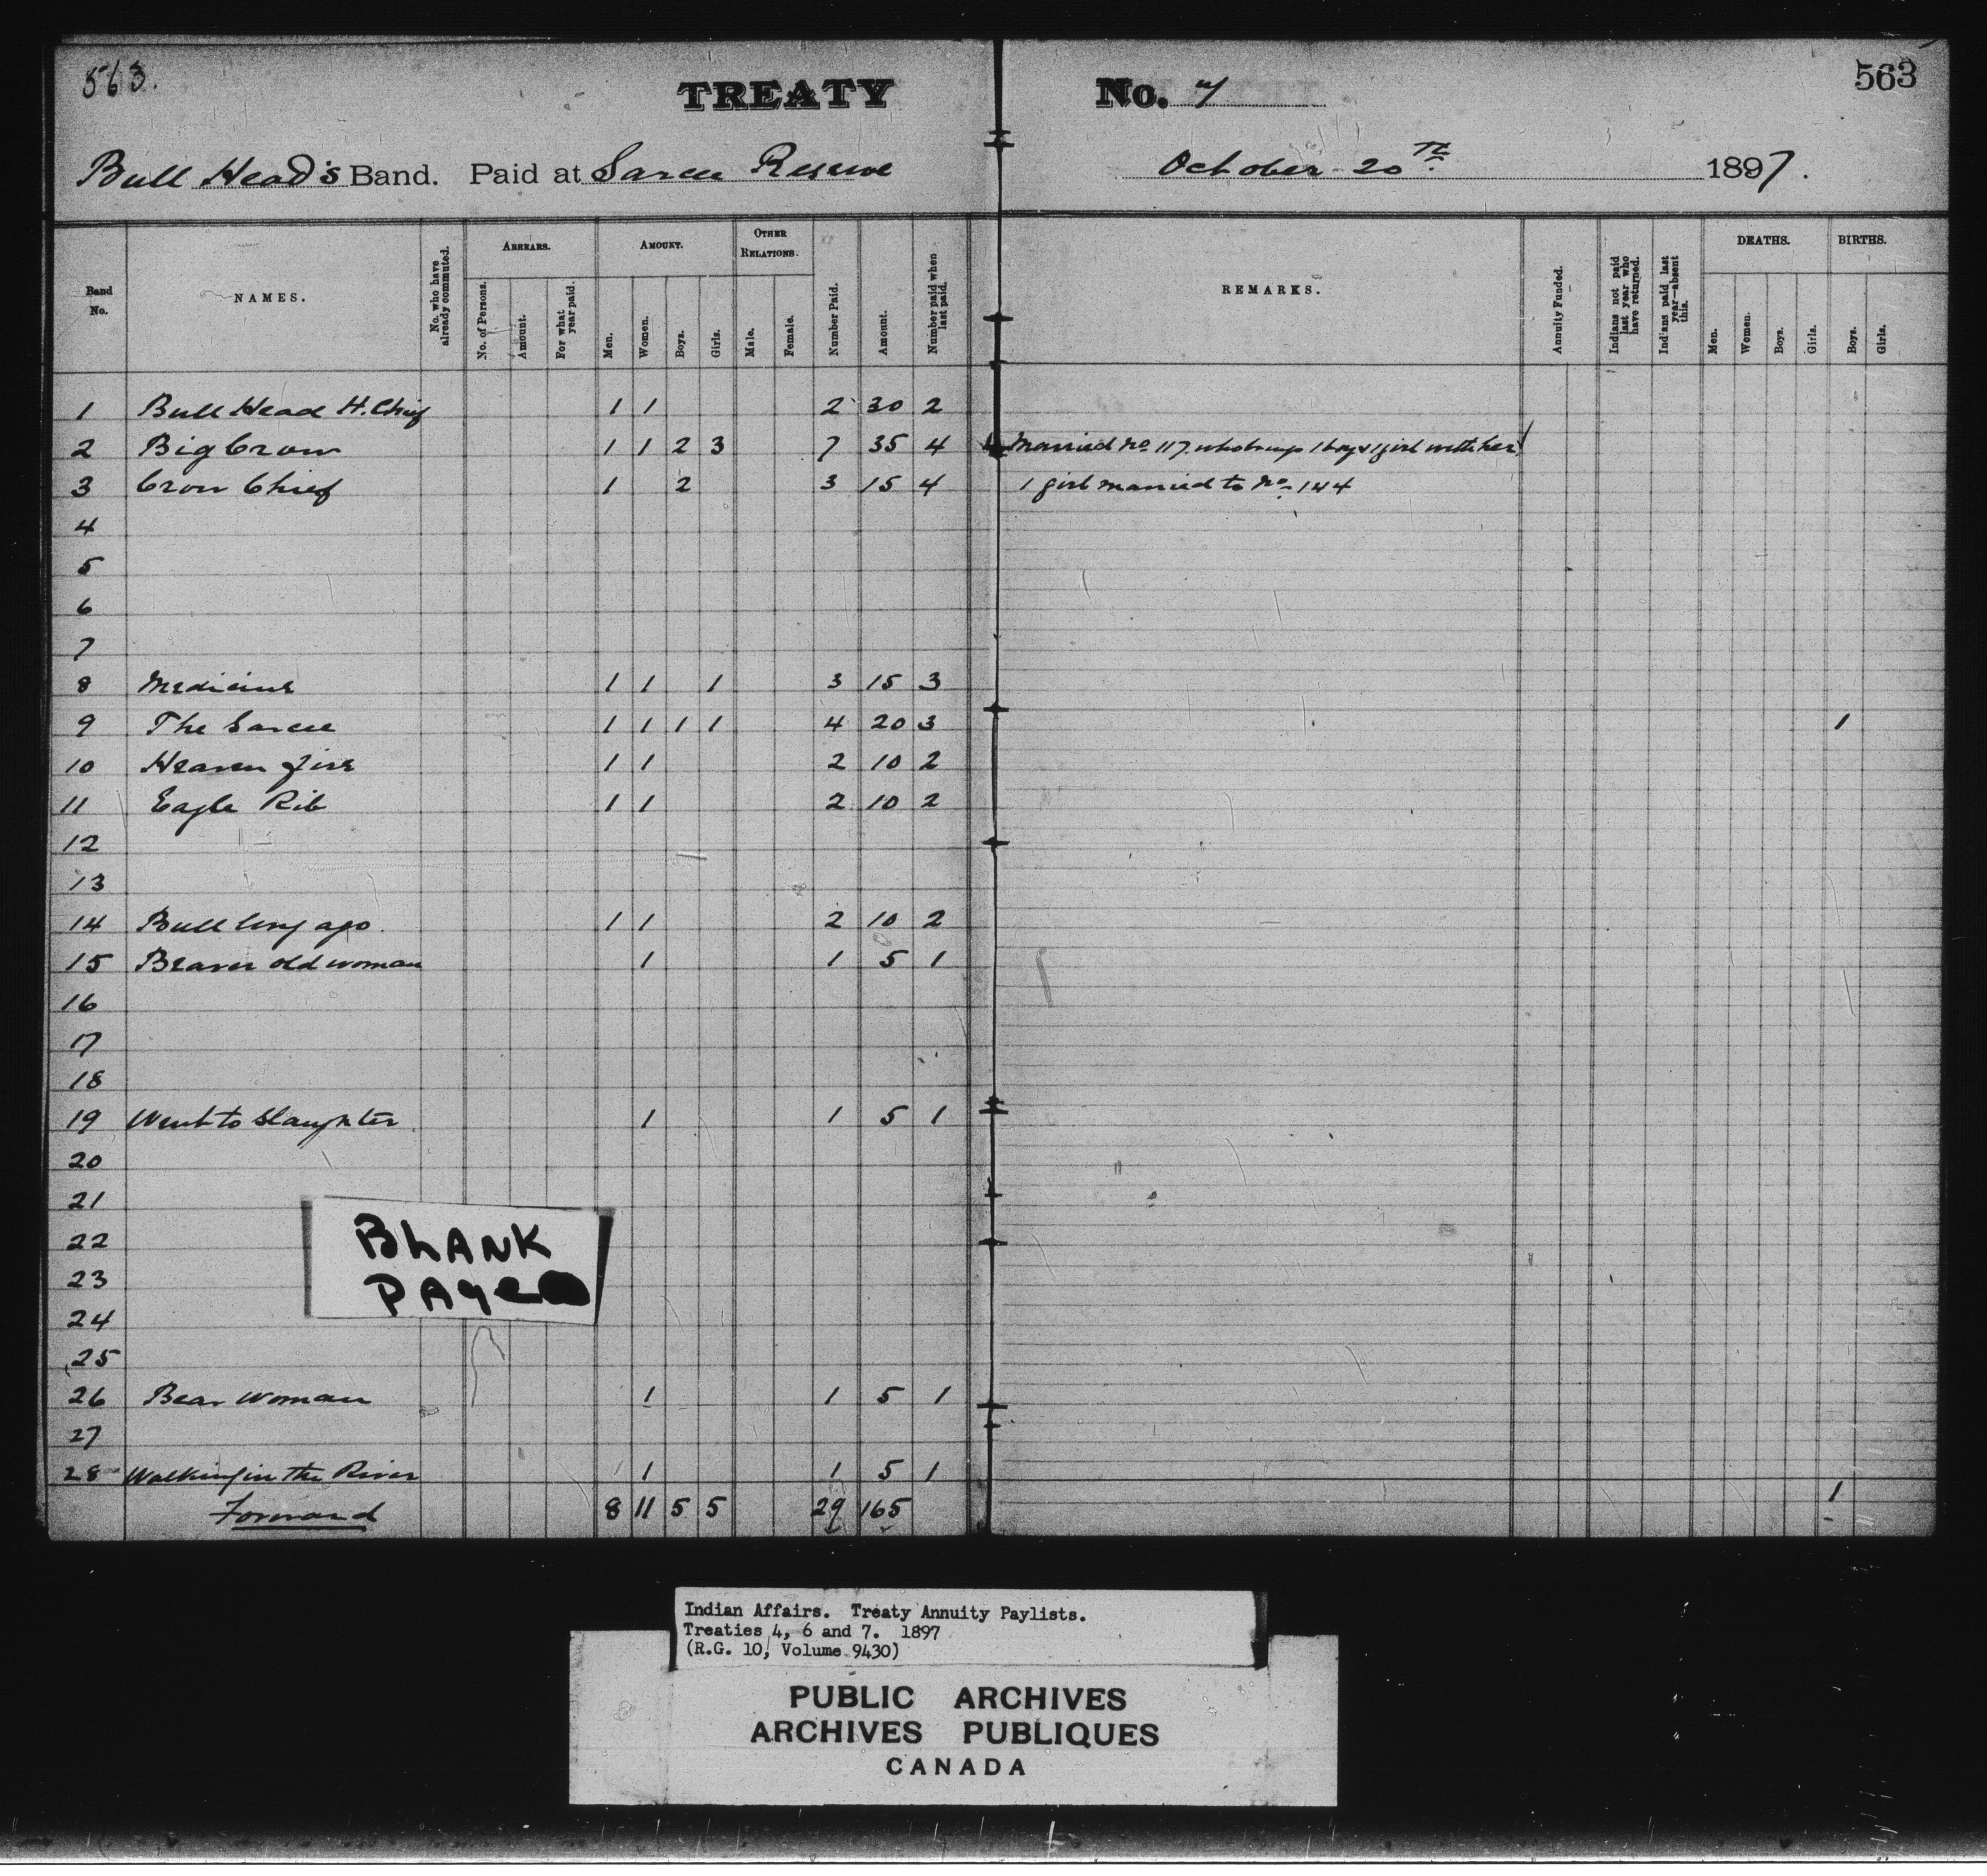 563.
TREATY No. 7
563
Bull Head's Band. Paid at Sarcee Reserve October 20th 1897.
Band No.
NAMES.
No. who have already commuted.
ARREARS.
No. of Persons.
Amount.
For what year paid.
AMOUNT.
Men.
Women.
Boys.
Girls.
OTHER RELATIONS.
Male.
Female.
Number Paid.
Amount.
Number paid when last paid.
REMARKS.
Annuity Funded.
Indians not paid last year who have returned.
Indians paid last year—absent this.
DEATHS.
Men.
Women.
Boys.
Girls.
BIRTHS.
Boys.
Girls.
1 Bull Head H. Chief 1 1 2 30 2
2 Big Crow 1 1 2 3 7 35 4 Married No 117. who brings 1 boy & 1 girl with her
3 Crow Chief 1 2 3 15 4 1 girl married to No 144
4
5
6
7
8 Medicine 1 1 1 3 15 3
9 The Sarcee 1 1 1 1 4 20 3 1
10 Heaven fire 1 1 2 10 2
11 Eagle Rib 1 1 2 10 2
12
13
14 Bull long ago. 1 1 2 10 2
15 Beaver old woman 1 1 5 1
16
17
18
19 Went to Slaughter 1 1 5 1
20
21
22
23
24
25
26 Bear Woman 1 1 5 1
27
28 Walking in the River 1 1 5 1
Forward 8 11 5 5 29 165 1
BLANK
PAGE
Indian Affairs. Treaty Annuity Paylists.
Treaties 4, 6 and 7. 1897
(R.G. 10, Volume 9430)
PUBLIC ARCHIVES
ARCHIVES PUBLIQUES
CANADA